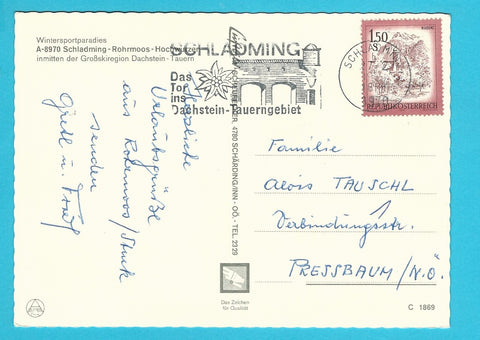 Wintersportparadies
A-8970 Schladming - Rohrmoos - Hochwurzen
inmitten der Großskiregion Dachstein - Tauern
SCHLADMING
Das
Tor
ins
Dachstein-Tauerngebiet
SCHLADMING
8970
1.50
S
REPUBLIK ÖSTERREICH
Herzliche
Urlaubsgrüße
aus Rohrmoos/Stmk
senden
Gretl u. Josef
4780 SCHÄRDING/INN - OÖ. - TEL. 2329
Familie
Alois TAUSCHL
Verbindungsstr. 1
PRESSBAUM/N.Ö.
Das Zeichen
für Qualität
C 1869